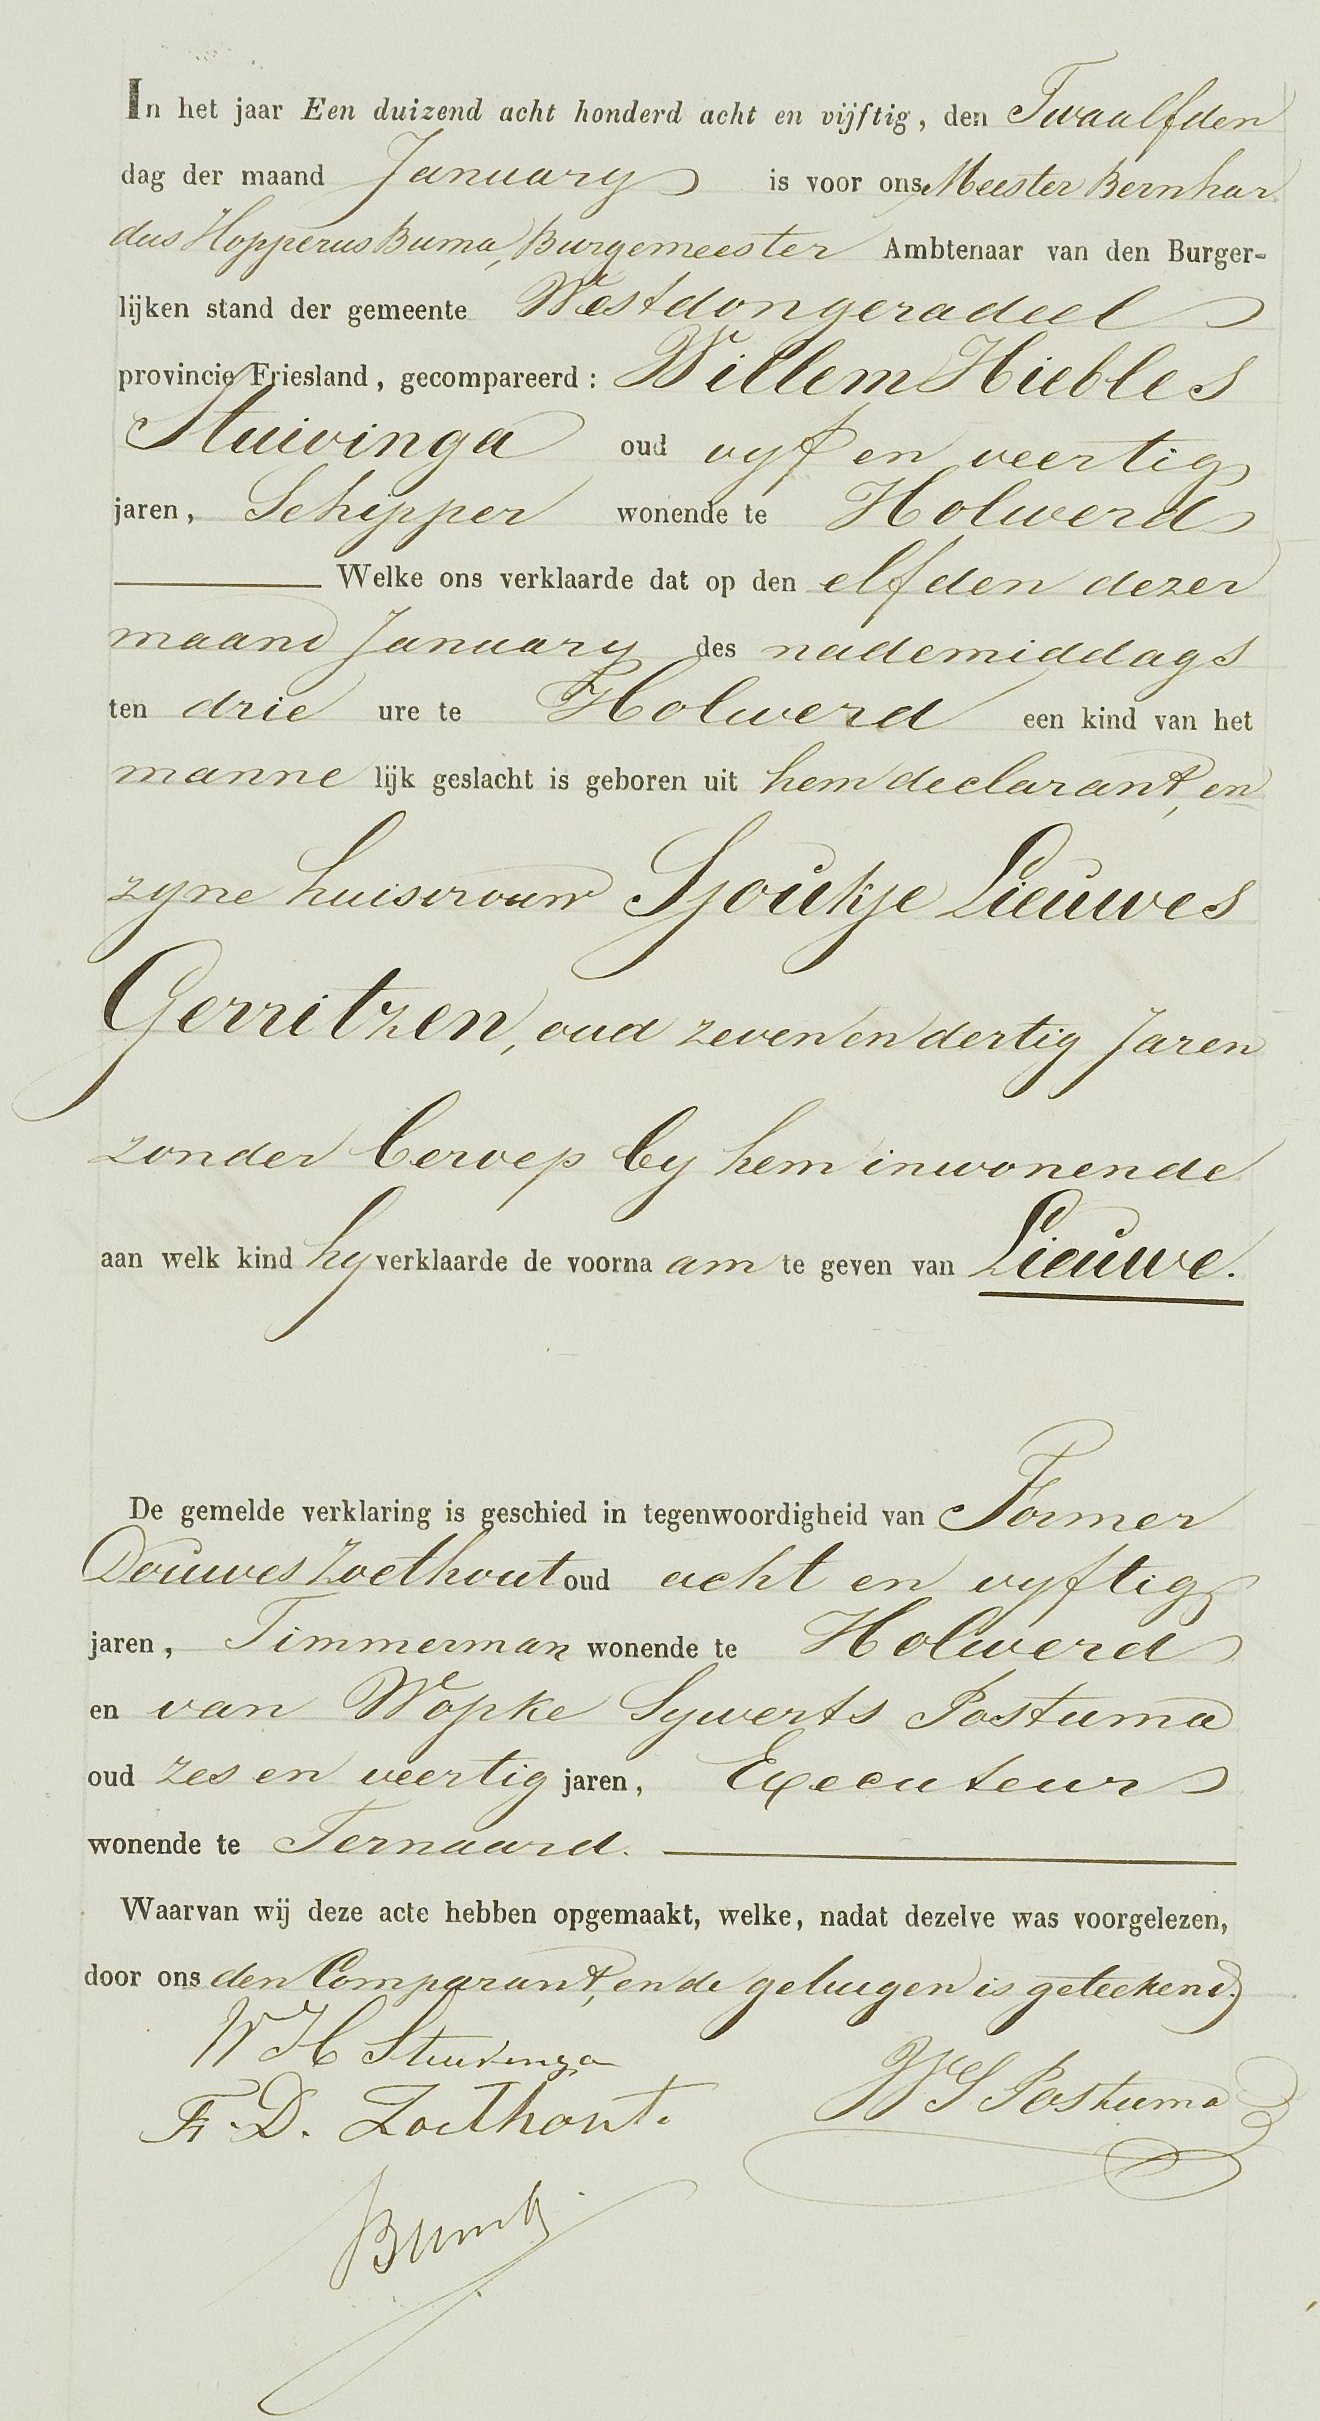 In het jaar Een duizend acht honderd acht en vijftig, den Twaalfden
dag der maand January is voor ons Meester Bernhar
dus Hopperus Buma, Burgemeester Ambtenaar van den Burger-
lijken stand der gemeente Westdongeradeel
provincie Friesland, gecompareerd: Willem Hiebles
Stuivinga oud vyf en veertig
jaren, Schipper wonende te Holwerd
Welke ons verklaarde dat op den elfden dezer
maand January des nademiddags
ten drie ure te Holwerd een kind van het
manne lijk geslacht is geboren uit hem declarant, en
zyne huisvrouw Sjoukje Lieuwes
Gerritzen, oud zeven en dertig Jaren
zonder beroep by hem inwonende
aan welk kind hy verklaarde de voorna am te geven van Lieuwe.
De gemelde verklaring is geschied in tegenwoordigheid vanFormer
Douwes Zoethout oud acht en vyftig
jaren, Timmerman wonende te Holwerd
en van Wopke Sywerts Postuma
oud zes en veertig jaren, Executeur
wonende te Ternaard.
Waarvan wij deze acte hebben opgemaakt, welke, nadat dezelve was voorgelezen,
door ons den Comparant, en de getuigen is geteekend.
W H Stuivinga
W S Postuma
F. D. Zoethout.
Buma